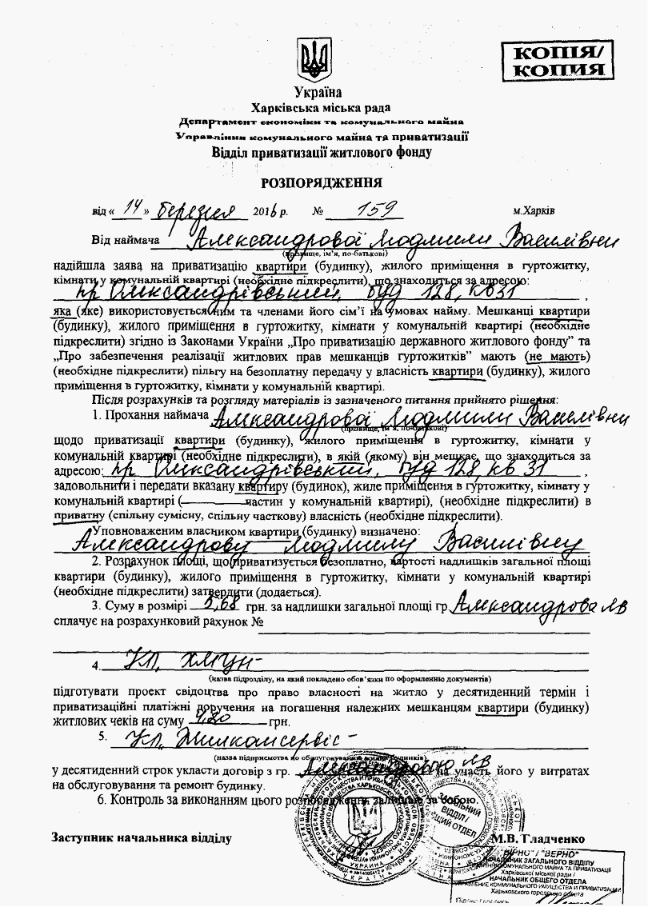 КОПІЯ/
КОПИЯ
Україна
Харківська міська рада
Департамент економіки та комунального майна
Управління комунального майна та приватизації
Відділ приватизації житлового фонду
РОЗПОРЯДЖЕННЯ
від « 14 » березня 2016 р. № 159 м.Харків
Від наймача Александрової Людмили Василівни
(прізвище, ім'я, по-батькові)
надійшла заява на приватизацію квартири (будинку), жилого приміщення в гуртожитку,
кімнати у комунальній квартирі (необхідне підкреслити), що знаходиться за адресою:
пр Олександрівський, буд 128, кв 31 ,
яка (яке) використовується ним та членами його сім'ї на умовах найму. Мешканці квартири
(будинку), жилого приміщення в гуртожитку, кімнати у комунальній квартирі (необхідне
підкреслити) згідно із Законами України „Про приватизацію державного житлового фонду” та
„Про забезпечення реалізації житлових прав мешканців гуртожитків” мають (не мають)
(необхідне підкреслити) пільгу на безоплатну передачу у власність квартири (будинку), жилого
приміщення в гуртожитку, кімнати у комунальній квартирі.
Після розрахунків та розгляду матеріалів із зазначеного питання прийнято рішення:
1. Прохання наймача Александрової Людмили Василівни
(прізвище, ім'я, по-батькові)
щодо приватизації квартири (будинку), жилого приміщення в гуртожитку, кімнати у
комунальній квартирі (необхідне підкреслити), в якій (якому) він мешкає, що знаходиться за
адресою: пр Олександрівський, буд 128 кв 31 ,
задовольнити і передати вказану квартиру (будинок), жиле приміщення в гуртожитку, кімнату у
комунальній квартирі ( частин у комунальній квартирі), (необхідне підкреслити) в
приватну (спільну сумісну, спільну часткову) власність (необхідне підкреслити).
Уповноваженим власником квартири (будинку) визначено:
Александрову Людмилу Василівну
2. Розрахунок площі, що приватизується безоплатно, вартості надлишків загальної площі
квартири (будинку), жилого приміщення в гуртожитку, кімнати у комунальній квартирі
(необхідне підкреслити) затвердити (додається).
3. Суму в розмірі грн. за надлишки загальної площі гр. Александрова ЛВ
сплачує на розрахунковий рахунок №
4.
(назва підрозділу, на який покладено обов'язки по оформленню документів)
підготувати проект свідоцтва про право власності на житло у десятиденний термін і
приватизаційні платіжні доручення на погашення належних мешканцям квартири (будинку)
житлових чеків на суму грн.
5. КП, Жилкомсервіс-
(назва підприємства по обслуговуванню будинків)
у десятиденний строк укласти договір з гр. Александровою ЛВ на участь його у витратах
на обслуговування та ремонт будинку.
6. Контроль за виконанням цього розпорядження залишаю за собою.
Заступник начальника відділу М.В. Гладченко
ЗАГАЛЬНИЙ
ВІДДІЛ /
ОБЩИЙ ОТДЕЛ
УКРАЇНА
"ВІРНО" / "ВЕРНО"
НАЧАЛЬНИК ЗАГАЛЬНОГО ВІДДІЛУ
УПРАВЛІННЯ КОМУНАЛЬНОГО МАЙНА ТА ПРИВАТИЗАЦІЇ
Харківської міської ради /
НАЧАЛЬНИК ОБЩЕГО ОТДЕЛА
УПРАВЛЕНИЕ КОММУНАЛЬНОГО ИМУЩЕСТВА И ПРИВАТИЗАЦИИ
Харьковского городского совета